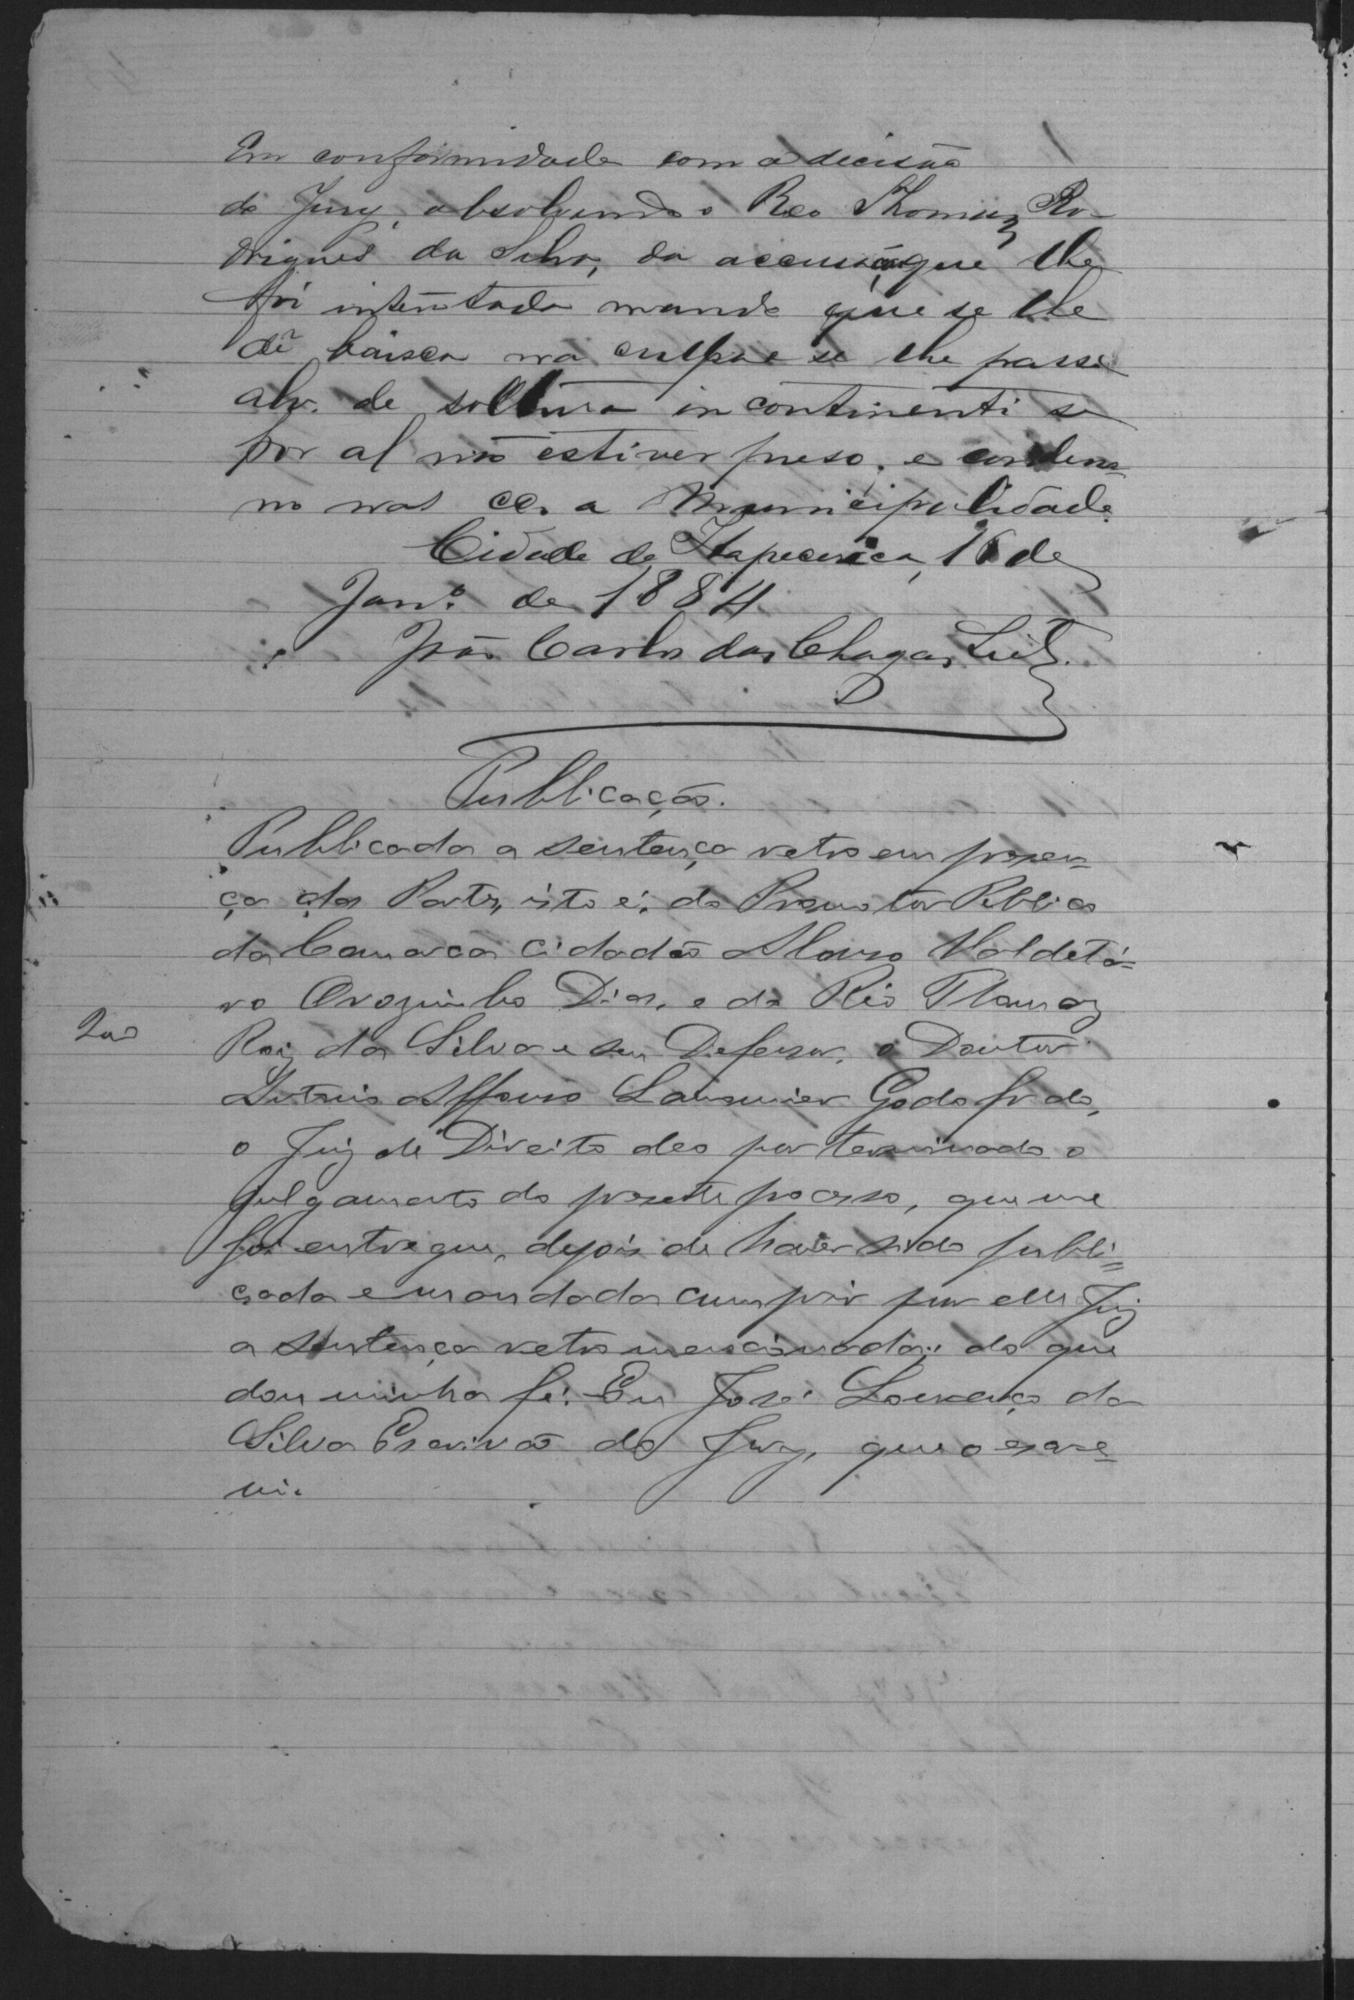 Em conformidade com a decisão
do Jury, absolvendo o Reo Thomaz Ro-
drigues da Silva, da accusação que lhe
foi intentada mando que se lhe
dê baixa na culpa e se lhe passe
alv. de solttura in continenti se
por al não estiver preso, e condem-
no nas cc. a Municipalidade.
Cidade de Itapecerica, 16 de
Janº. de 1884
João Carlos das Chagas
Publicação.
Publicada a sentença retro em presen-
ça das Partes, isto é; do Promotor Publico
da Comarca cidadão Valdetá-
ro Dias, e do Réo Thomaz
Roiz da Silva e seu Defensor, o Doutor
Affonso Godofrdo,
o Juiz de Direito deo por terminado o
julgamento do presente processo, que me
foi entregue, depois de haver sido publi-
cada e mandada cumprir por elle Juiz
a sentença retro mencionada; do que
dou minha fé. Eu José Lourenço da
Silva Escrivão do Jury, que o escre-
vi.